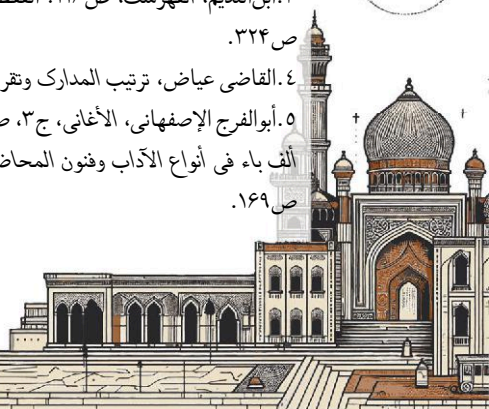 ابن‌الندیم، الفهرست، ص
ص۳۲۴.
٤.القاضی عیاض، ترتیب المدارک وتقر
٥.أبوالفرج الإصفهانی، الأغانی، ج۳، ص
ألف باء فی أنواع الآداب وفنون المحاض
ص۱۶۹.